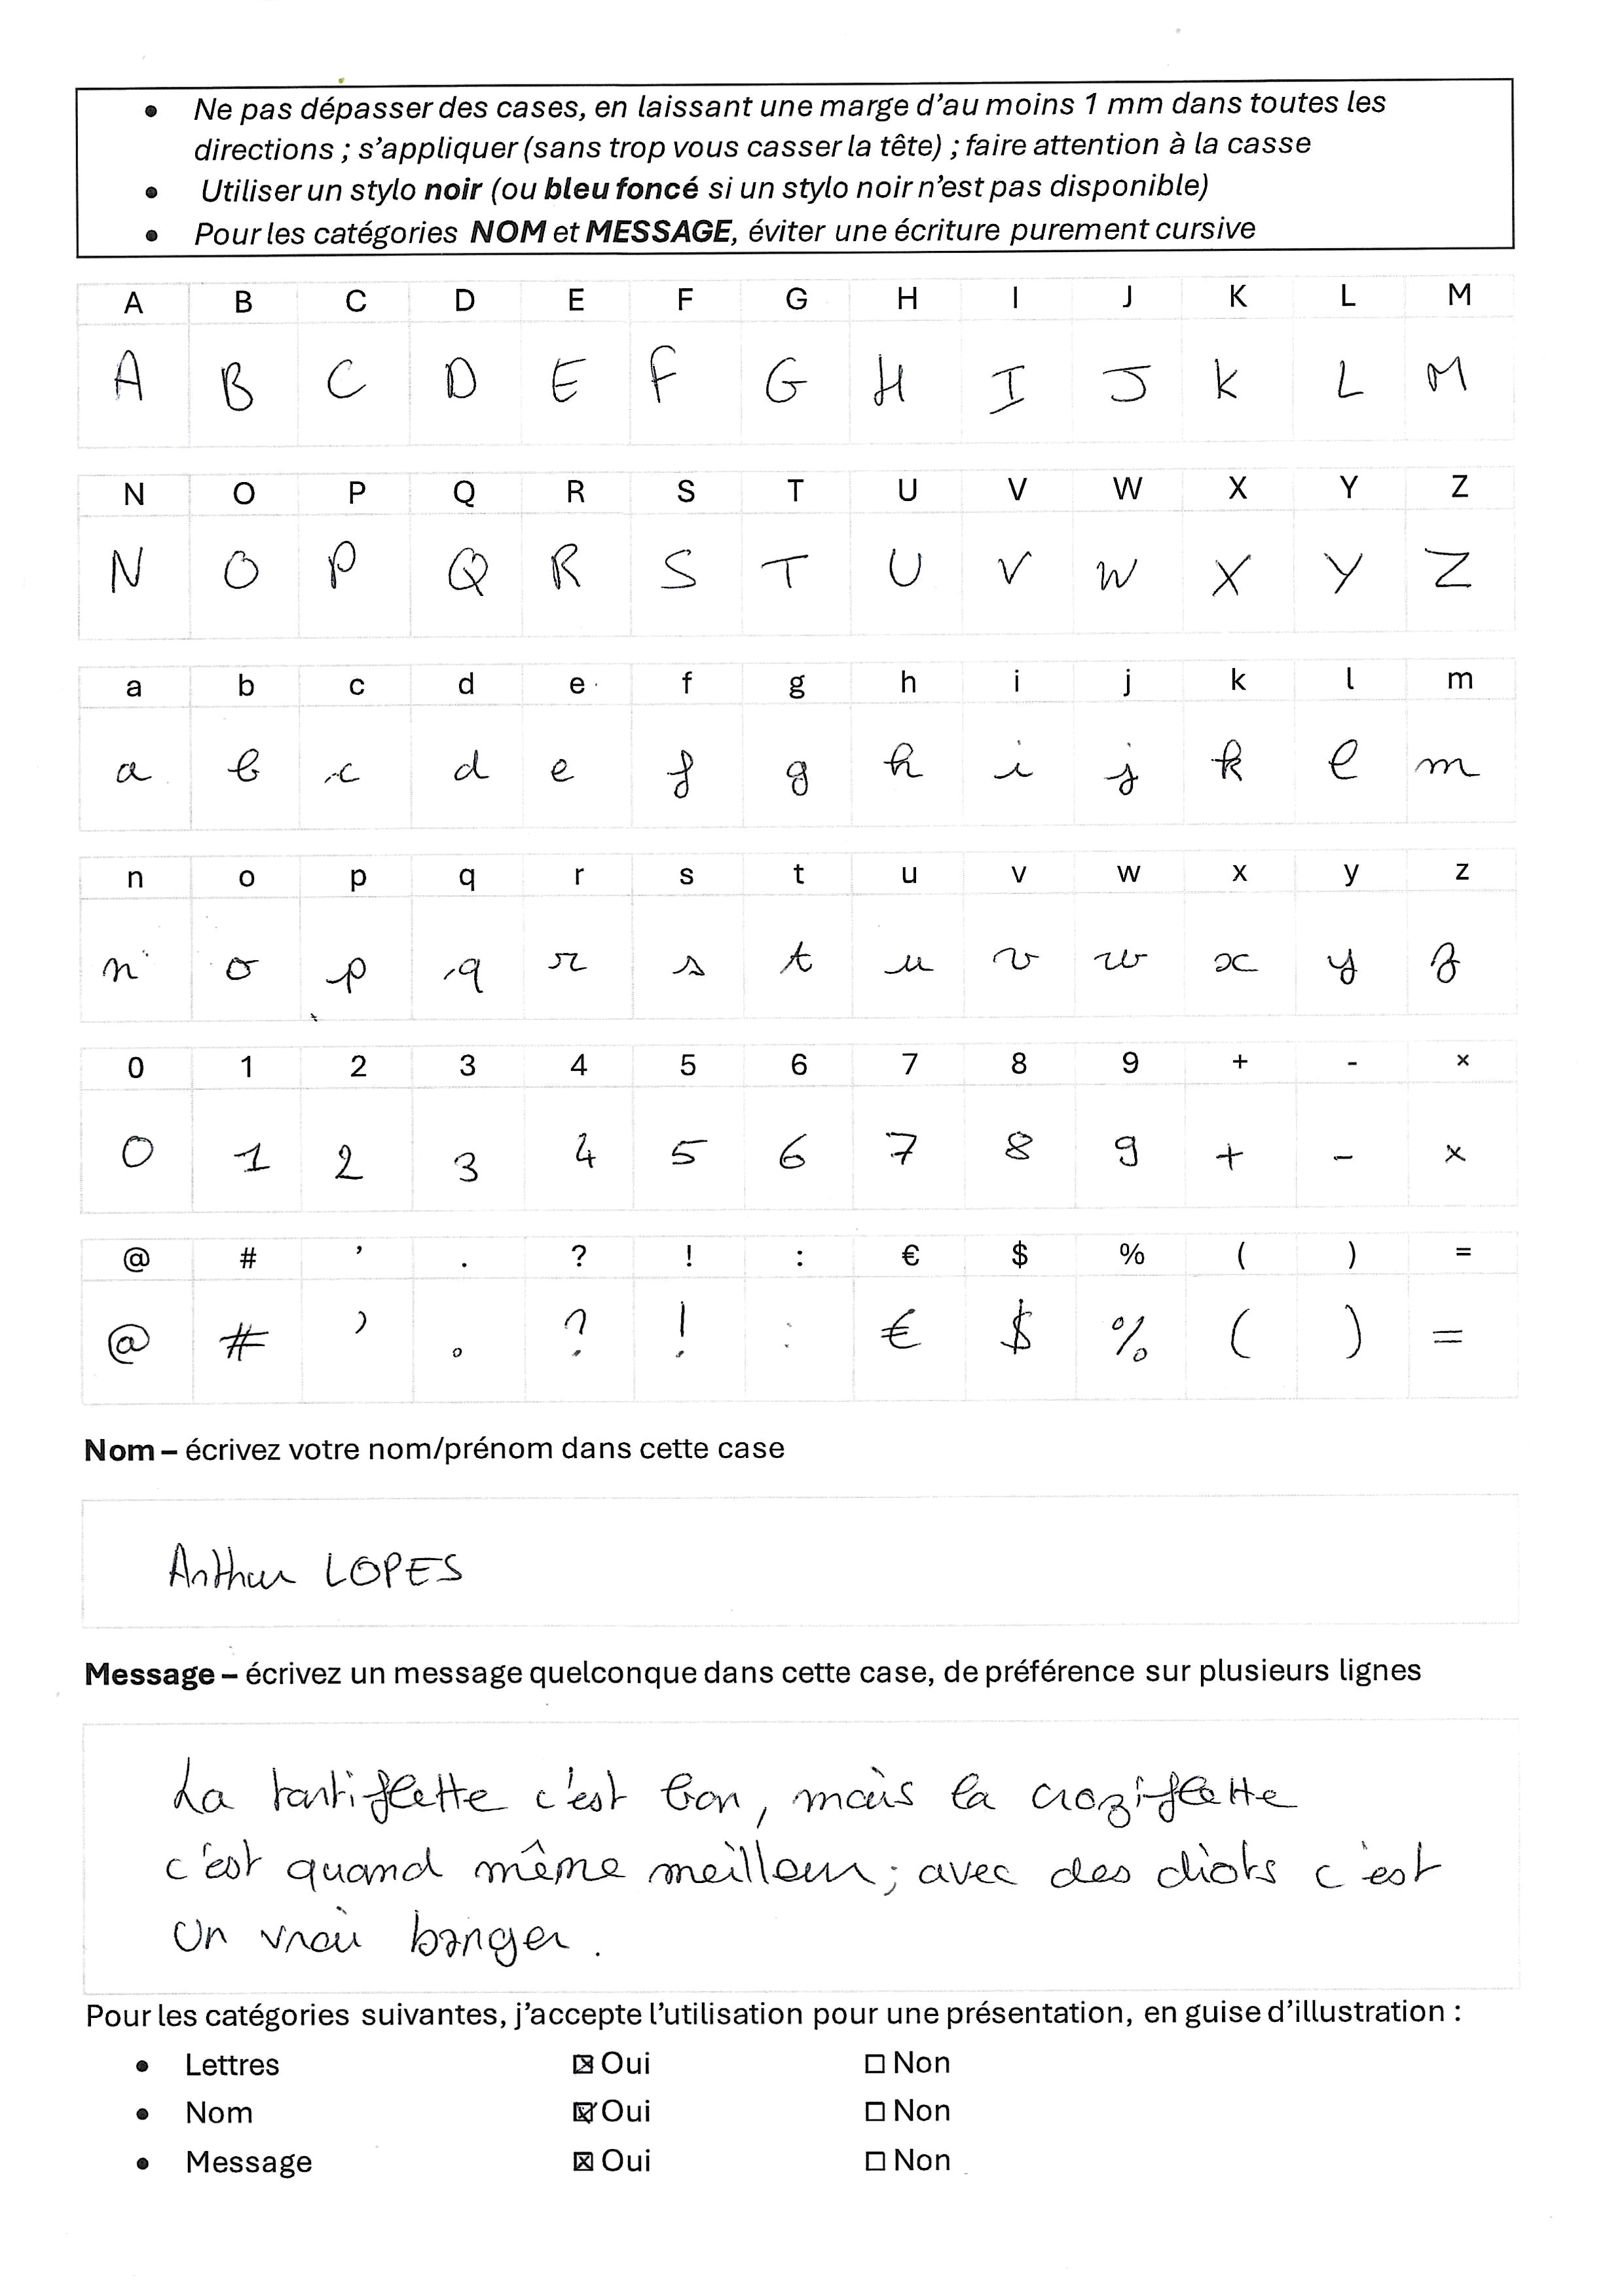 • Ne pas dépasser des cases, en laissant une marge d’au moins 1 mm dans toutes les
directions ; s’appliquer (sans trop vous casser la tête) ; faire attention à la casse
• Utiliser un stylo noir (ou bleu foncé si un stylo noir n’est pas disponible)
• Pour les catégories NOM et MESSAGE, éviter une écriture purement cursive
A B C D E F G H I J K L M
A B C D E F G H I J K L M
N O P Q R S T U V W X Y Z
N O P Q R S T U V W X Y Z
a b c d e f g h i j k l m
a b c d e f g h i j k l m
n o p q r s t u v w x y z
n o p q r s t u v w x y z
0 1 2 3 4 5 6 7 8 9 + - ×
0 1 2 3 4 5 6 7 8 9 + - ×
@ # ’ . ? ! : € $ % ( ) =
@ # ’ . ? ! : € $ % ( ) =
Nom – écrivez votre nom/prénom dans cette case
Arthur LOPES
Message – écrivez un message quelconque dans cette case, de préférence sur plusieurs lignes
La tartiflette c'est bon, mais la croziflette
c'est quand même meilleur ; avec des diots c'est
un vrai banger.
Pour les catégories suivantes, j’accepte l’utilisation pour une présentation, en guise d’illustration :
• Lettres ☒ Oui ☐ Non
• Nom ☒ Oui ☐ Non
• Message ☒ Oui ☐ Non